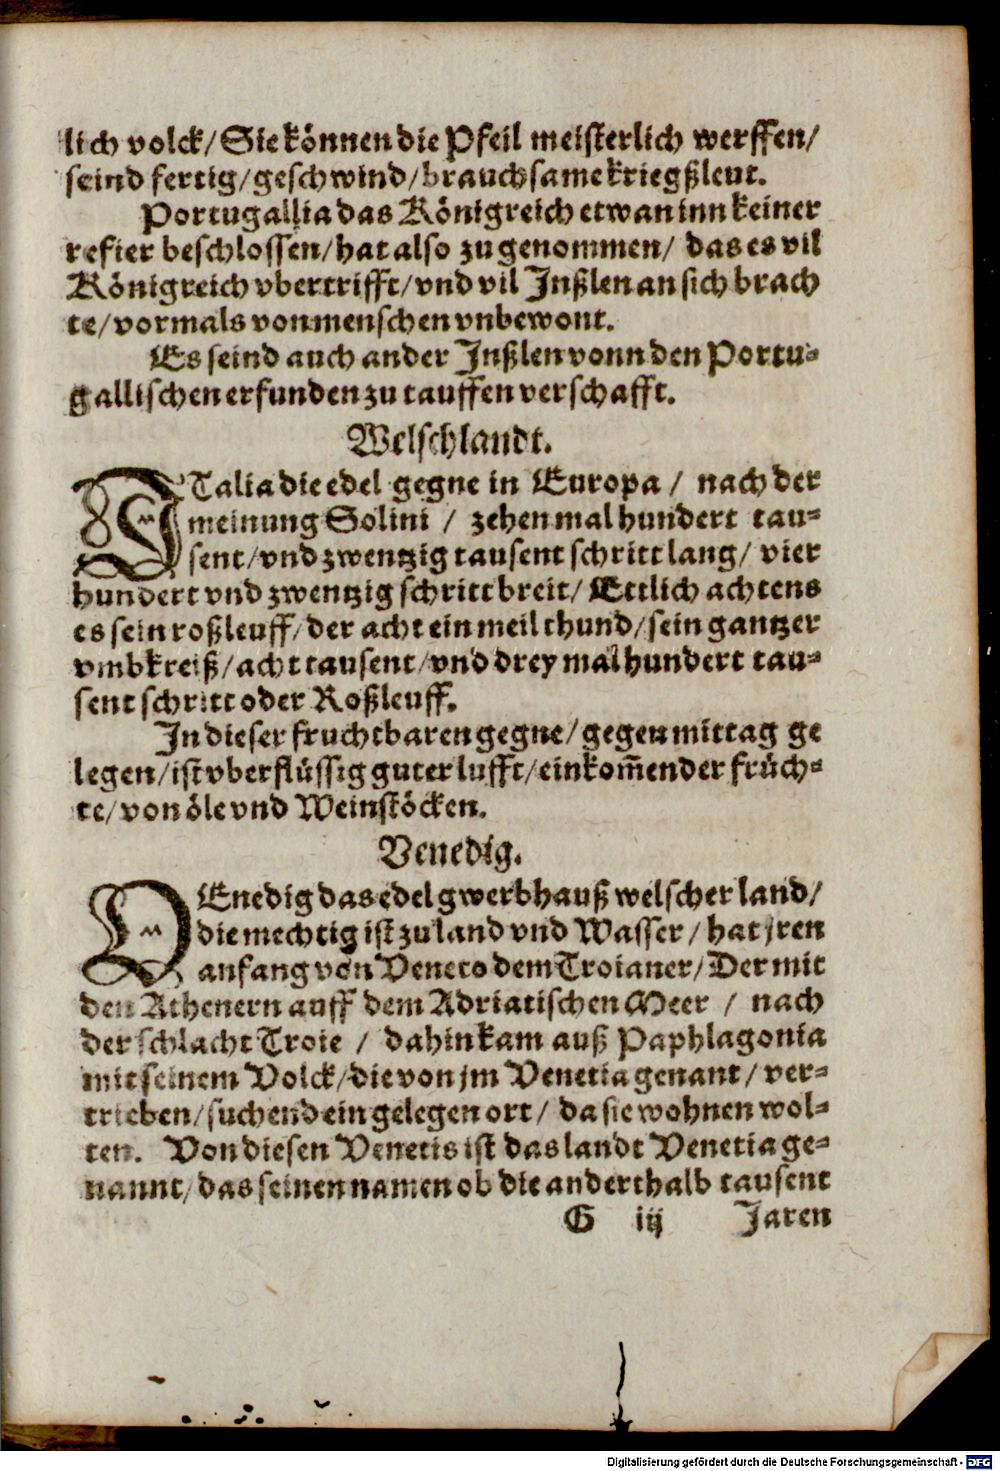 lich volck/ Sie können die Pfeil meisterlich werffen/
seind fertig/ geschwind/ brauchsame kriegßleut.
Portugallia das Königreich etwan inn keiner
refier beschlossen/ hat also zu genommen/ das es vil
Königreich vbertrifft/ vnd vil Inßlen an sich brach
te/ vormals von menschen vnbewont.
Es seind auch ander Inßlen vonn den Portu-
gallischen erfunden zu tauffen verschafft.
Welschlandt.
ITalia die edel gegne in Europa / nach der
meinung Solini / zehen mal hundert tau-
sent/ vnd zwentzig tausent schritt lang/ vier
hundert vnd zwentzig schritt breit/ Ettlich achtens
es sein roßleuff/ der acht ein meil thund/ sein gantzer
vmbkreiß/ acht tausent/ vnd drey mal hundert tau-
sent schritt oder Roßleuff.
In dieser fruchtbaren gegne/ gegen mittag ge
legen/ ist vberflüssig guter lufft/ einkom̃en der früch-
te/ von öle vnd Weinstöcken.
Venedig.
VEnedig das edel gwerbhauß welscher land/
die mechtig ist zu land vnd Wasser/ hat jren
anfang von Veneto dem Troianer/ Der mit
den Athenern auff dem Adriatischen Meer / nach
der schlacht Troie / dahin kam auß Paphlagonia
mit seinem Volck/ die von jm Venetia genant/ ver-
trieben/ suchend ein gelegen ort/ da sie wohnen wol-
ten. Von diesen Venetis ist das landt Venetia ge-
nannt/ das seinen namen ob die anderthalb tausent
G iij Jaren
Digitalisierung gefördert durch die Deutsche Forschungsgemeinschaft - DFG